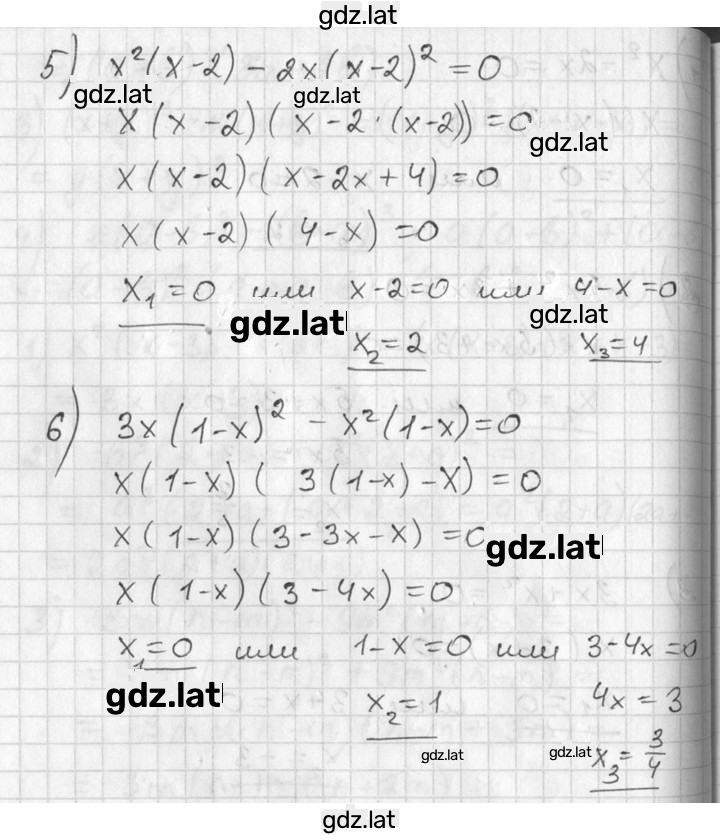 gdz.lat
5) x²(x-2) - 2x(x-2)² = 0
gdz.lat gdz.lat
x(x-2)(x-2·(x-2)) = 0
gdz.lat
x(x-2)(x-2x+4) = 0
x(x-2)(4-x) = 0
x₁ = 0 или x-2=0 или 4-x=0
gdz.lat gdz.lat
x₂ = 2 x₃ = 4
6) 3x(1-x)² - x²(1-x) = 0
x(1-x)(3(1-x)-x) = 0
x(1-x)(3-3x-x) = 0
gdz.lat
x(1-x)(3-4x) = 0
x₁ = 0 или 1-x=0 или 3-4x=0
gdz.lat x₂ = 1 4x = 3
gdz.lat gdz.lat x₃ = 3/4
gdz.lat